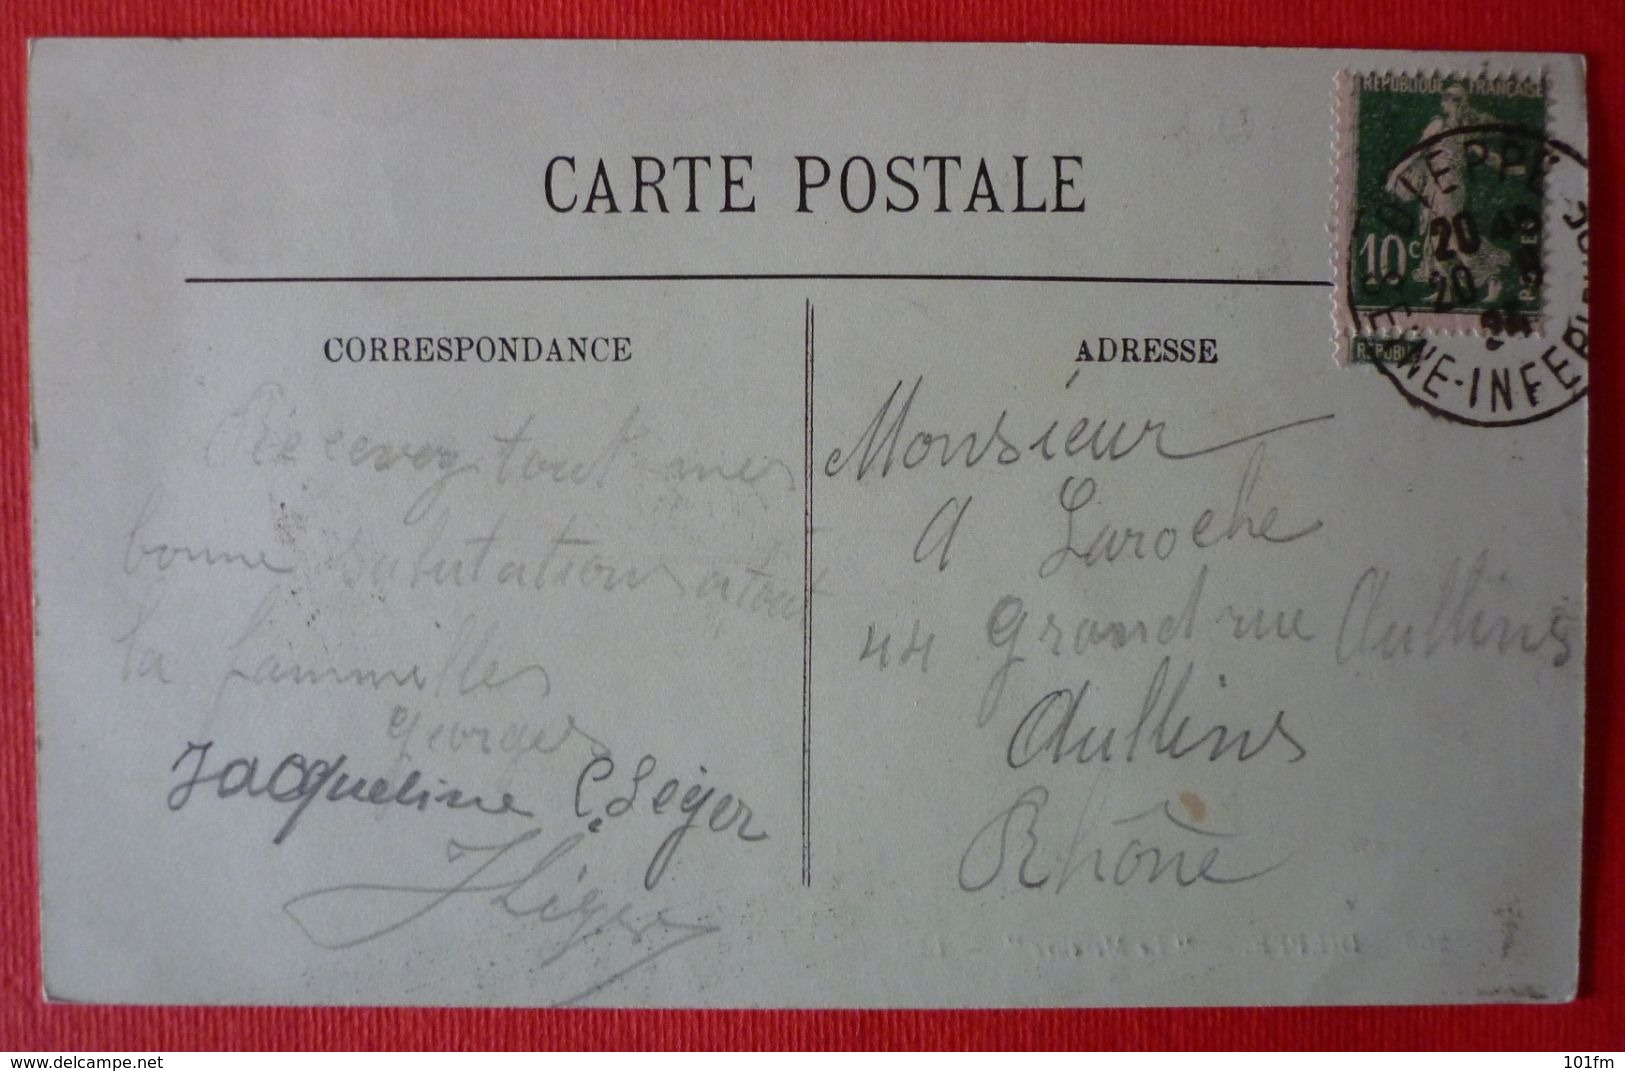 CARTE POSTALE
CORRESPONDANCE
Recevez tout mes
bonne salutations a tout
la fammilles
georges
Jacqueline C. Léger
Léger
ADRESSE
Monsieur
A Laroche
44 grand rue Oullins
Oullins
Rhône
REPUBLIQUE FRANÇAISE
10c
POSTES
REPUBLI
DIEPPE
20 45
20
NE-INFER
www.delcampe.net
101fm